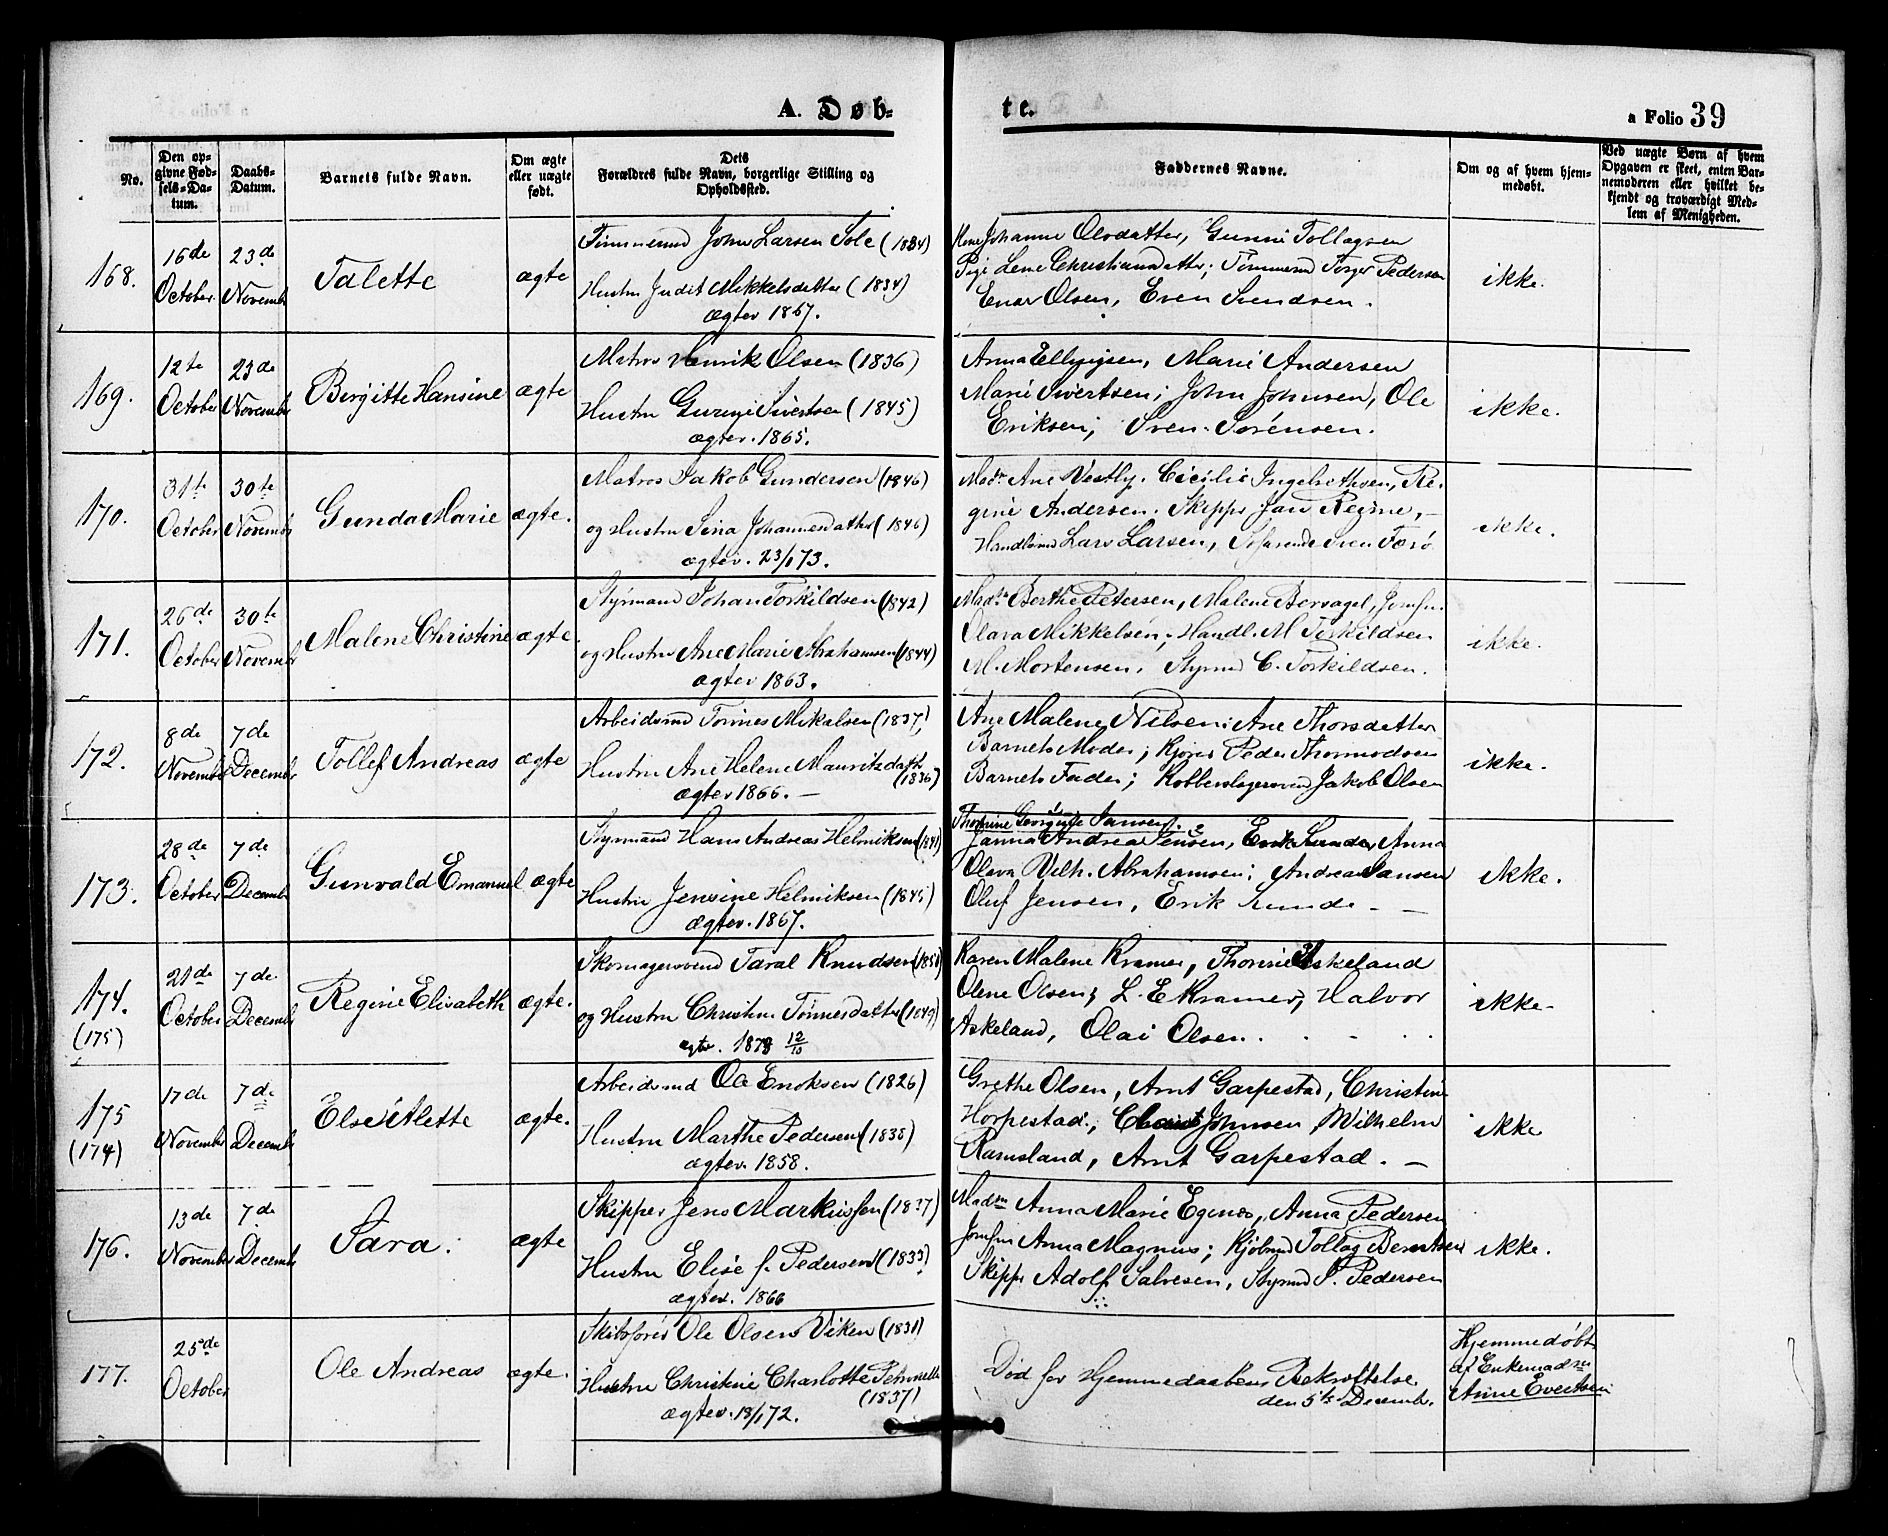 A. Døb-
te.
a Folio 39
No.
Den op-
givne Fød-
sels-Da-
tum.
Daabs-
Datum.
Barnets fulde Navn.
Om ægte
eller uægte
født.
Dets
Forældres fulde Navn, borgerlige Stilling og
Opholdssted.
Faddernes Navne.
Om og af hvem hjem-
medøbt.
Ved uægte Børn af hvem
Opgaven er skeet, enten Bar-
nemoderen eller hvilket be-
kjendt og troværdigt Med-
lem af Menigheden.
168.
16de
October
23de
Novemb
Talette
ægte
Tømmermd John Larsen Sole (1834)
Hustru Judit Mikkelsdatter (1834)
ægtev 1867.
Johanne Olsdatter, Gunni Tollagsen
Pige Lene Christiansdatter; Tømmermd Torger Pedersen
Enar Olsen, Even Svendsen.
ikke.
169.
12te
October
23de
Novembr
Birgitte Hansine
ægte
Matros Henrik Olsen (1836)
Hustru Sivertsen (1845)
ægtev. 1865.
Anna Marie Andersen
Marie Sivertsen; John Johnsen, Ole
Eriksen; Sven Sørensen.
ikke.
170.
31te
October
30te
Novembr
Gunda Marie
ægte.
Matros Jakob Gundersen (1846)
og Hustru Sina Johannesdatter (1846)
ægtev. 23/1 73.
Madm Ane Vestly. Cicilie Ingebrethsen, Re-
gine Andersen. Skipper Jan Regine, -
Handlsmd Lars Larsen, Søfarende Sven Færø
ikke.
171.
26de
October
30te
Novembr
Malene Christine
ægte.
Styrmand Johan Torkildsen (1842)
og Hustru Ane Marie Abrahamsen (1844)
ægtev 1863.
Madm Berthe Petersen, Malene Borsagel, Jomfru
Olava Mikkelsen; Handl. M Torkildsen
M. Mortensen. Styrmd C. Torkildsen.
ikke.
172.
8de
November
7de
Decembr
Tollef Andreas
ægte
Arbeidsmd Tønnes Mikalsen (1837)
Hustru Ane Helene Mauritzdatter
(1836)
ægtev 1866. -
Ane Malene Nilsen. Ane Thorsdatter
Barnets Moder; Peder Thormodsen
Barnets Fader; Kobberslagersvend Jakob Olsen
ikke.
173.
28de
October
7de
Decembr
Gunvald Emanuel
ægte
Styrmand Hans Andreas Helmiksen (1841)
Hustru Jensine Helmiksen (1845)
ægtev. 1867.
Thorine Georgine Jansen.
Janna Andrea Jensen, Erik Lunde, Anna
Olava Vilh. Abrahamsen; Andreas Jansen
Oluf Jensen, Erik Lunde -
ikke.
174.
(175)
21de
October
7de
Decembr
Regine Elisabeth
ægte.
Skomagersvend Taral Knudsen (1851)
og Hustru Christine Tønnesdatter (1849)
ægtev. 1873 12/10
Karen Malene Kramer, Thorine Askeland
Olene Olsen; L. E Kramer, Halvor
Askeland, Olai Olsen.
ikke-
175
(174)
17de
November
7de
Decembr
Else Alette
ægte.
Arbeidsmd Ole Enoksen (1826)
Hustru Marthe Pedersen (1838)
ægtev. 1858.
Grethe Olsen, Arnt Garpestad, Christine
Horpestad; Johnsen, Wilhelm
Ramsland, Arnt Garpestad. -
ikke
176.
13de
November
7de
Decembr
Sara.
ægte
Skipper Jens Markussen (1837)
Hustru Elise f. Pedersen (1833)
ægtev. 1866
Madm Anna Marie Egenæs, Anna Pedersen
Jomfru Anna Magnus; Kjøbmd Tollag Berntsen
Skipper Adolf Salvesen, Styrmd P. Pedersen
ikke.
177.
25de
October
Ole Andreas
ægte.
Skibsfører Ole Olsen Viken (1831)
Hustru Christine Charlotte Petronelle
(1837)
ægtev. 18/1 72.
Død før Hjemmedaabens Bekræftelse
den 5te Decembr.
Hjemmedøbt
af Enkemadm
Anne Evertsen